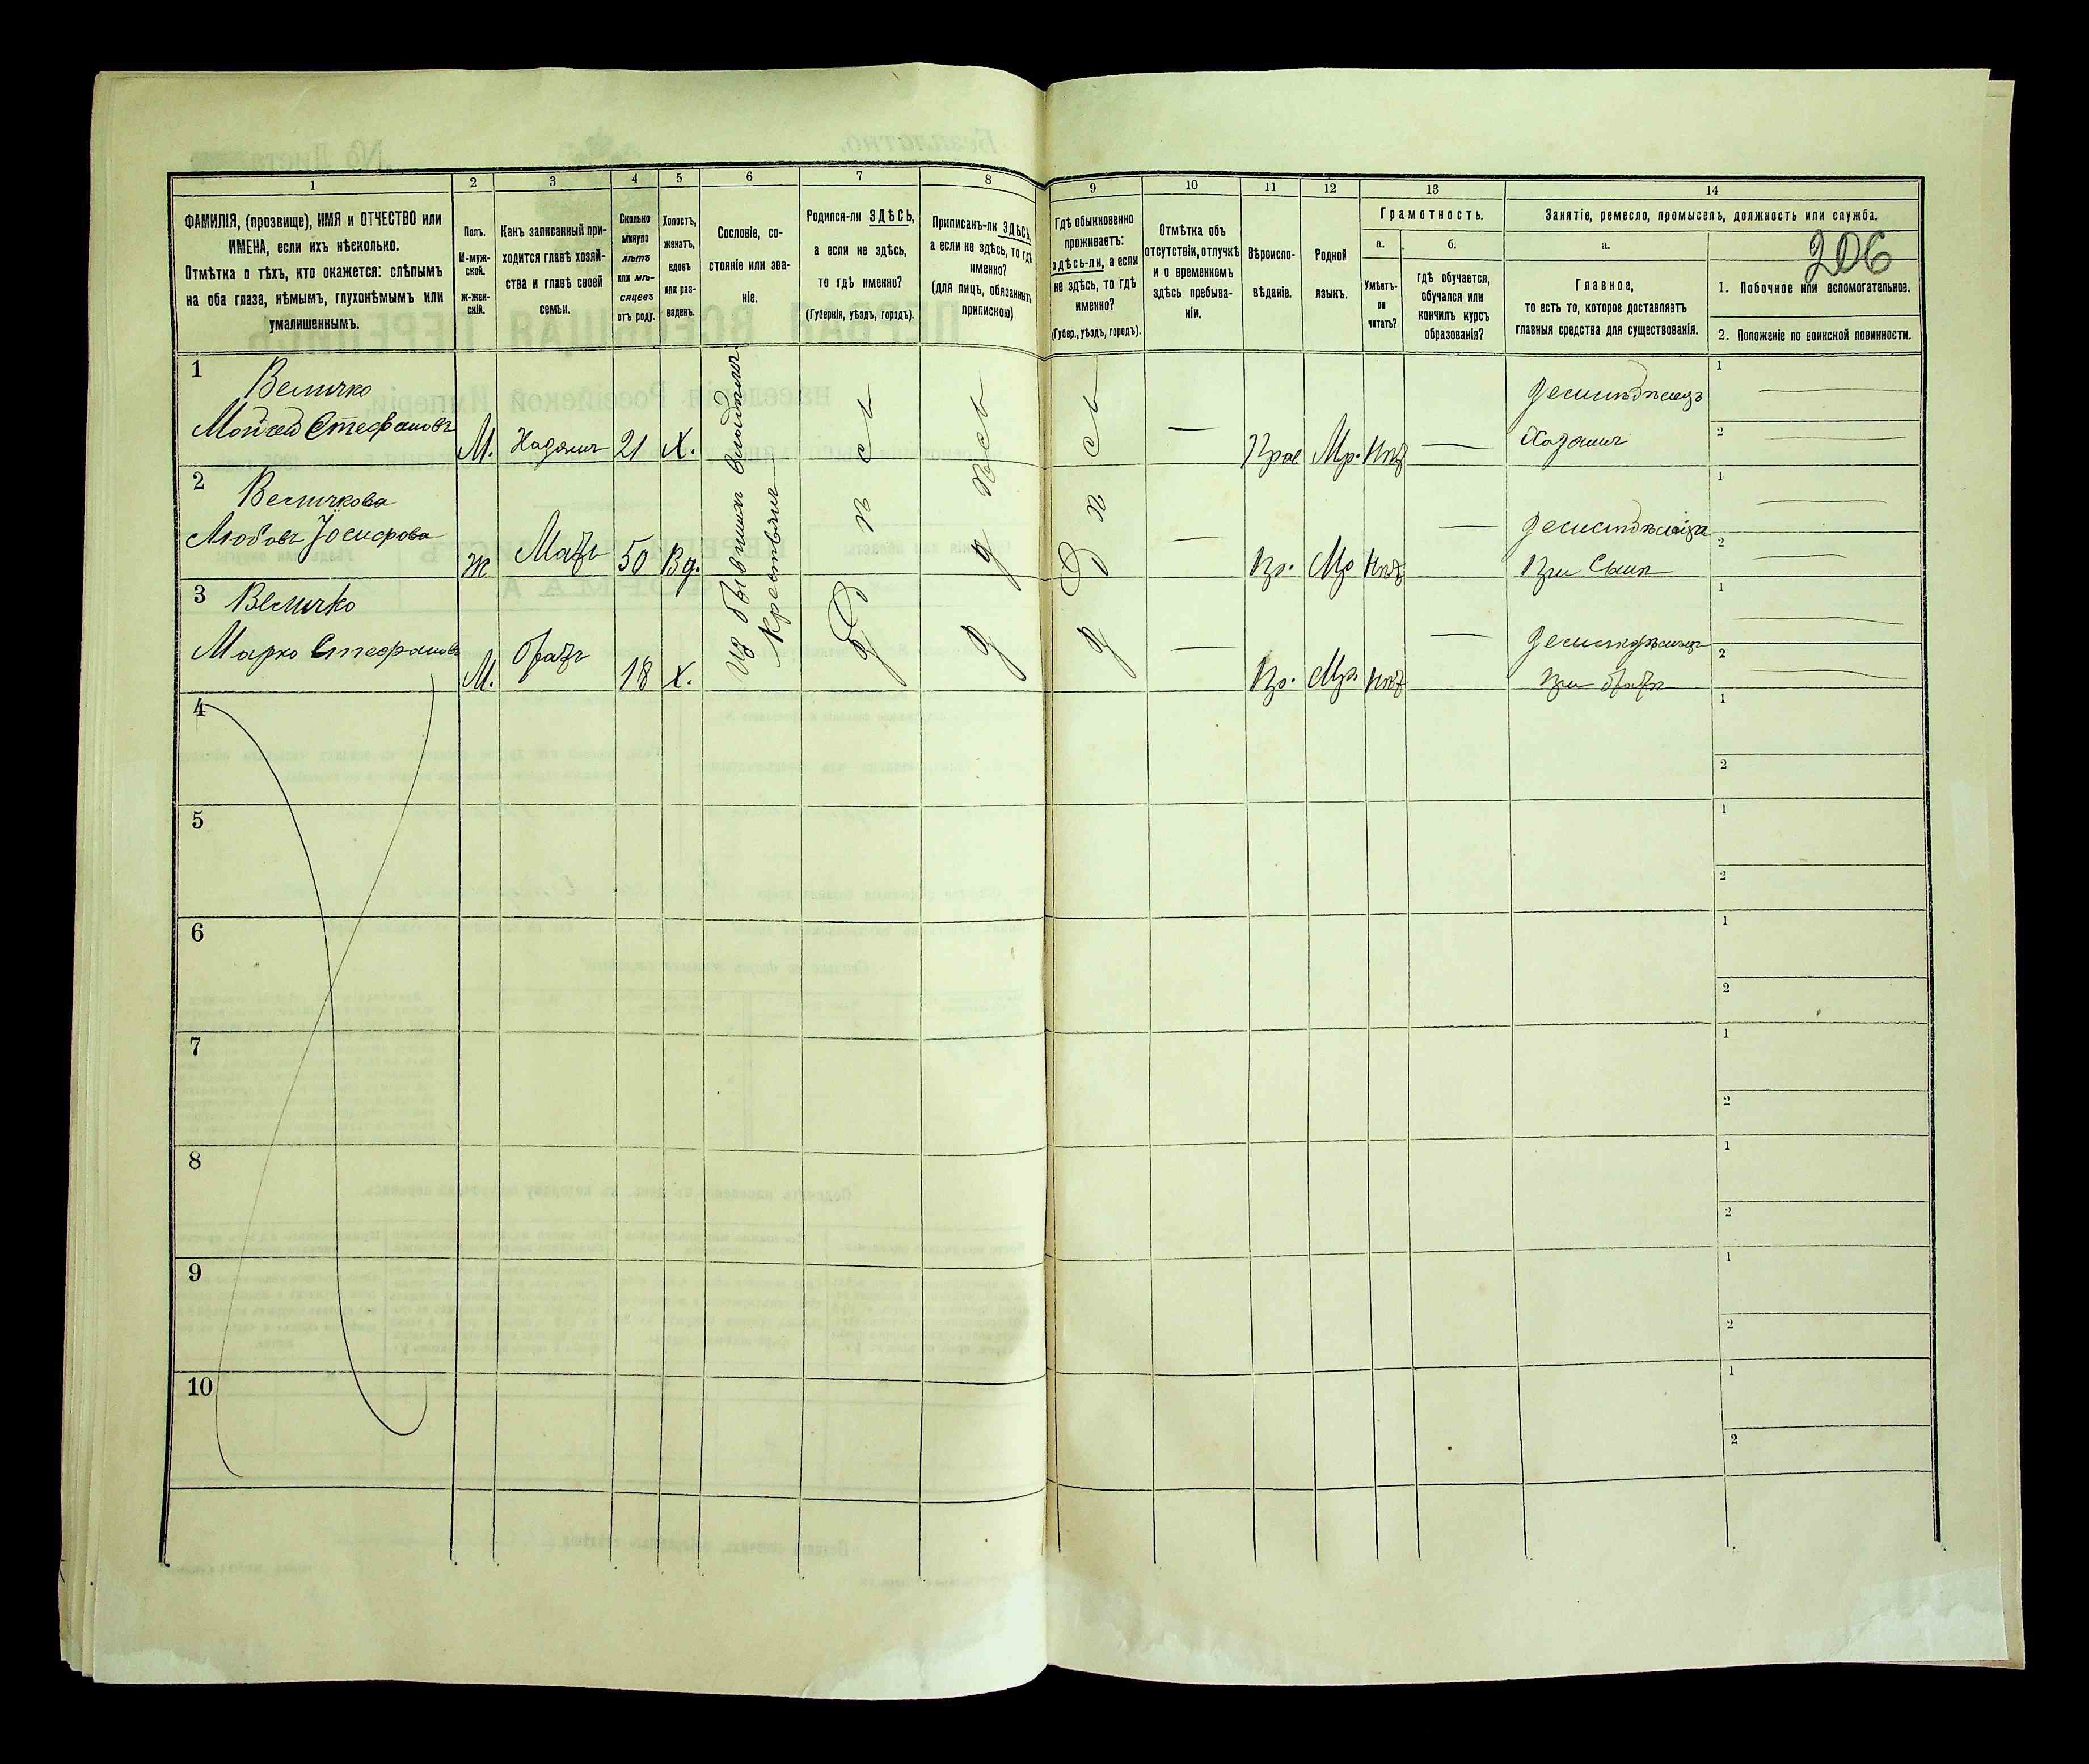 1
2
3
4
5
6
7
8
9
10
11
12
13
14
ФАМИЛІЯ, (прозвище), ИМЯ и ОТЧЕСТВО или
ИМЕНА, если ихъ нѣсколько.
Отмѣтка о тѣхъ, кто окажется: слѣпымъ
на оба глаза, нѣмымъ, глухонѣмымъ или
умалишеннымъ.
Полъ.
М-муж-
ской.
Ж-жен-
скій.
Какъ записанный при-
ходится главѣ хозяй-
ства и главѣ своей
семьи.
Сколько
минуло
лѣтъ
или мѣ-
сяцевъ
отъ роду.
Холостъ,
женатъ,
вдовъ
или раз-
веденъ.
Сословіе, со-
стояніе или зва-
ніе.
Родился-ли ЗДѢСЬ,
а если не здѣсь,
то гдѣ именно?
(Губернія, уѣздъ, городъ).
Приписанъ-ли ЗДѢСЬ,
а если не здѣсь, то гдѣ
именно?
(для лицъ, обязанныхъ
припискою)
Гдѣ обыкновенно
проживаетъ:
здѣсь-ли, а если
не здѣсь, то гдѣ
именно?
(Губер., уѣздъ, городъ).
Отмѣтка объ
отсутствіи, отлучкѣ
и о временномъ
здѣсь пребыва-
ніи.
Вѣроиспо-
вѣданіе.
Родной
языкъ.
Грамотность.
а.
б.
Умѣетъ-
ли
читать?
гдѣ обучается,
обучался или
кончилъ курсъ
образованія?
Занятіе, ремесло, промыселъ, должность или служба.
а.
206
Главное,
то есть то, которое доставляетъ
главныя средства для существованія.
1. Побочное или вспомогательное.
2. Положеніе по воинской повинности.
1
Величко
Мойсей Стефановъ
М.
Хазяинъ
21
Х.
Изъ бывшихъ владѣльч
Крестьянъ
Здѣсь
Здѣсь
Здѣсь
Прав
Мр.
Нѣт
Хазяинъ
1
2
2
Величкова
Любовь Іосифова
Ж
Мать
50
Вд.
Пр.
Мр
Нѣт
При Сынѣ
1
2
3
Величко
Марко Стефановъ
М.
братъ
18
Х.
Пр.
Мр.
Нѣт
При братѣ
1
2
4
1
2
5
1
2
6
1
2
7
1
2
8
1
2
9
1
2
10
1
2